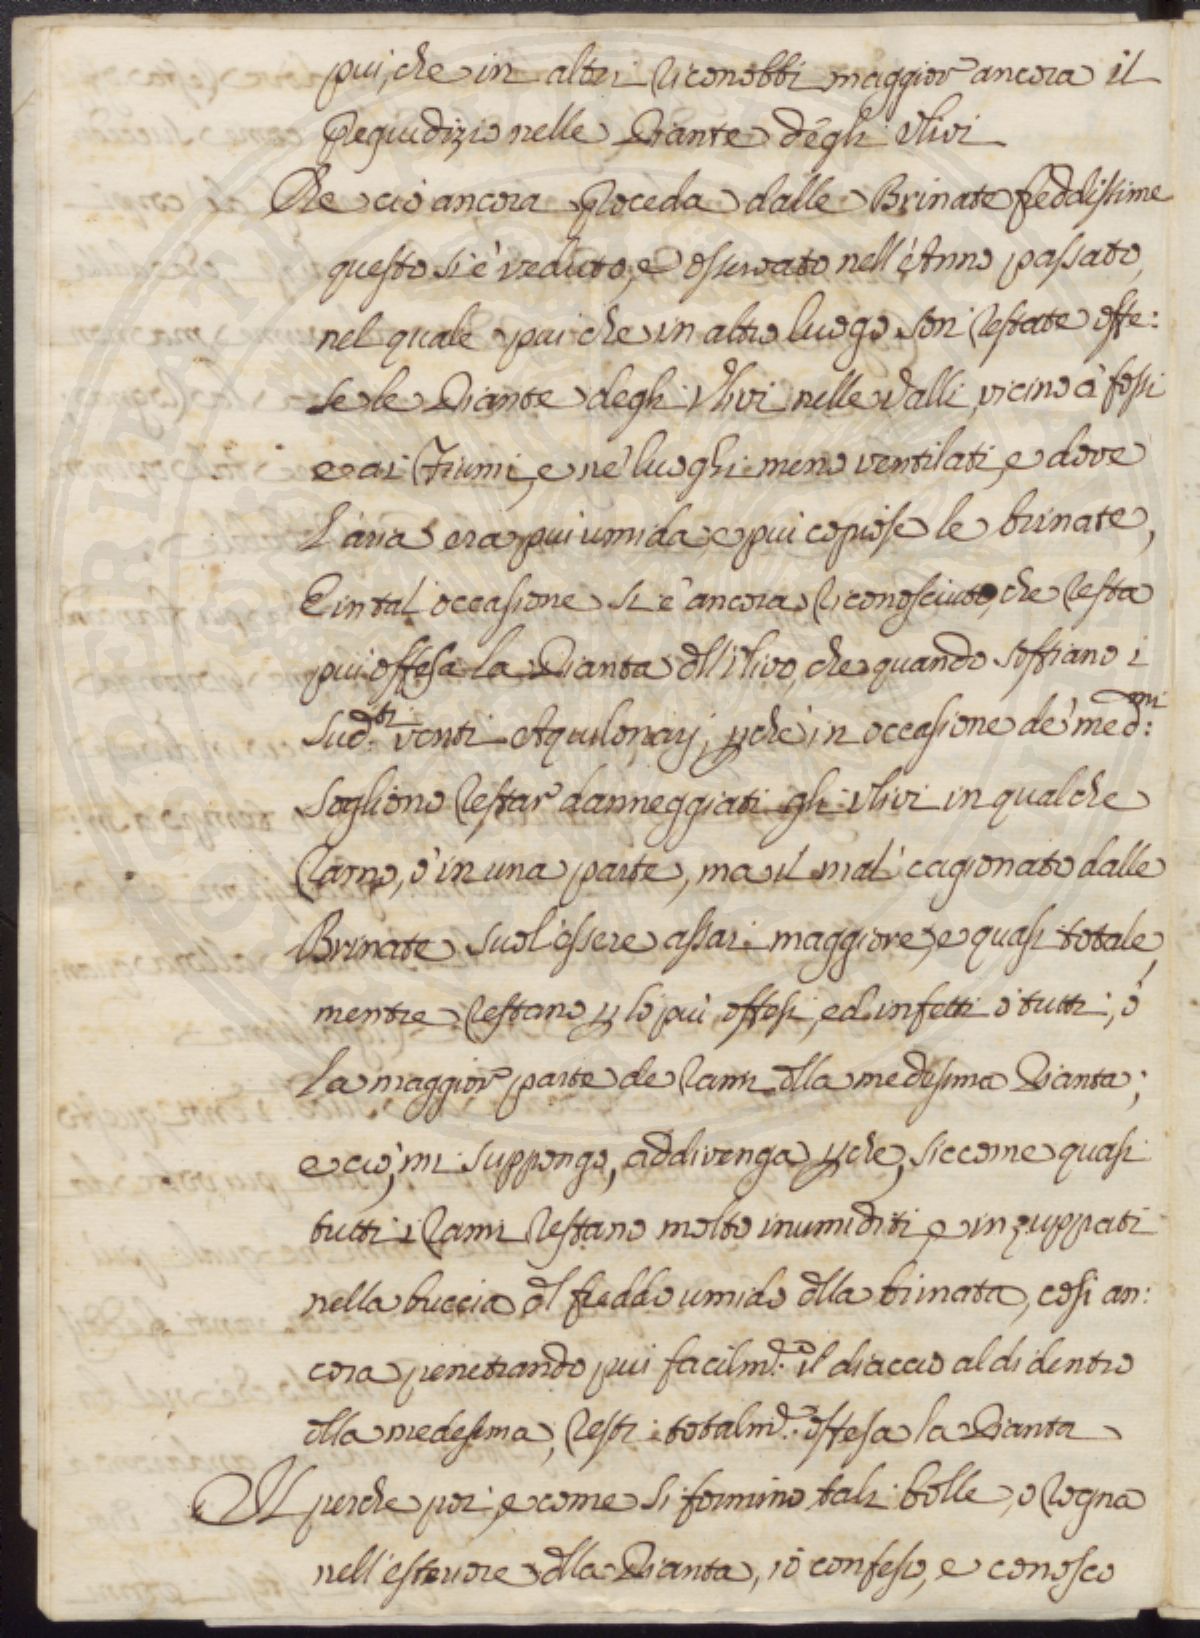 piu, che in altri riconobbi maggior ancora il
Pregiudizio nelle Piante degli Ulivi
Che ciò ancora proceda dalle Brinate freddissime
questo si è veduto, e osservato nell'Anno passato,
nel quale piu che in altro luogo son restate offe:
se le Piante degli Ulivi nelle Valli, vicino a' fossi
e ai Fiumi, e ne' luoghi meno ventilati, e dove
l'aria era piu umida, e piu copiose le brinate,
E in tal occasione si è ancora riconosciuto, che resta
piu offesa la Pianta dll'Ulivo, che quando soffiano i
sud.ti venti Aquilonarj, pche in occasione de' med.mi
sogliono restar danneggiati gli Ulivi in qualche
ramo, ò in una parte, ma il mal cagionato dalle
Brinate suol essere assai maggiore, e quasi totale,
mentre restano p lo più offesi, ed infetti ò tutti, ò
la maggior parte de rami dlla medesima Pianta;
e ciò, mi suppongo, addivenga pche, siccome quasi
tutti i rami restano molto inumiditi, e inzuppati
nella buccia dl freddo umido dlla brinata, così an:
cora penetrando piu facilm.e il diaccio al di dentro
dlla medesima, resti totalm.e offesa la Pianta
Il perche poi, e come si formino tali bolle, o rogna
nell'esteriore dlla Pianta, io confesso, e conosco